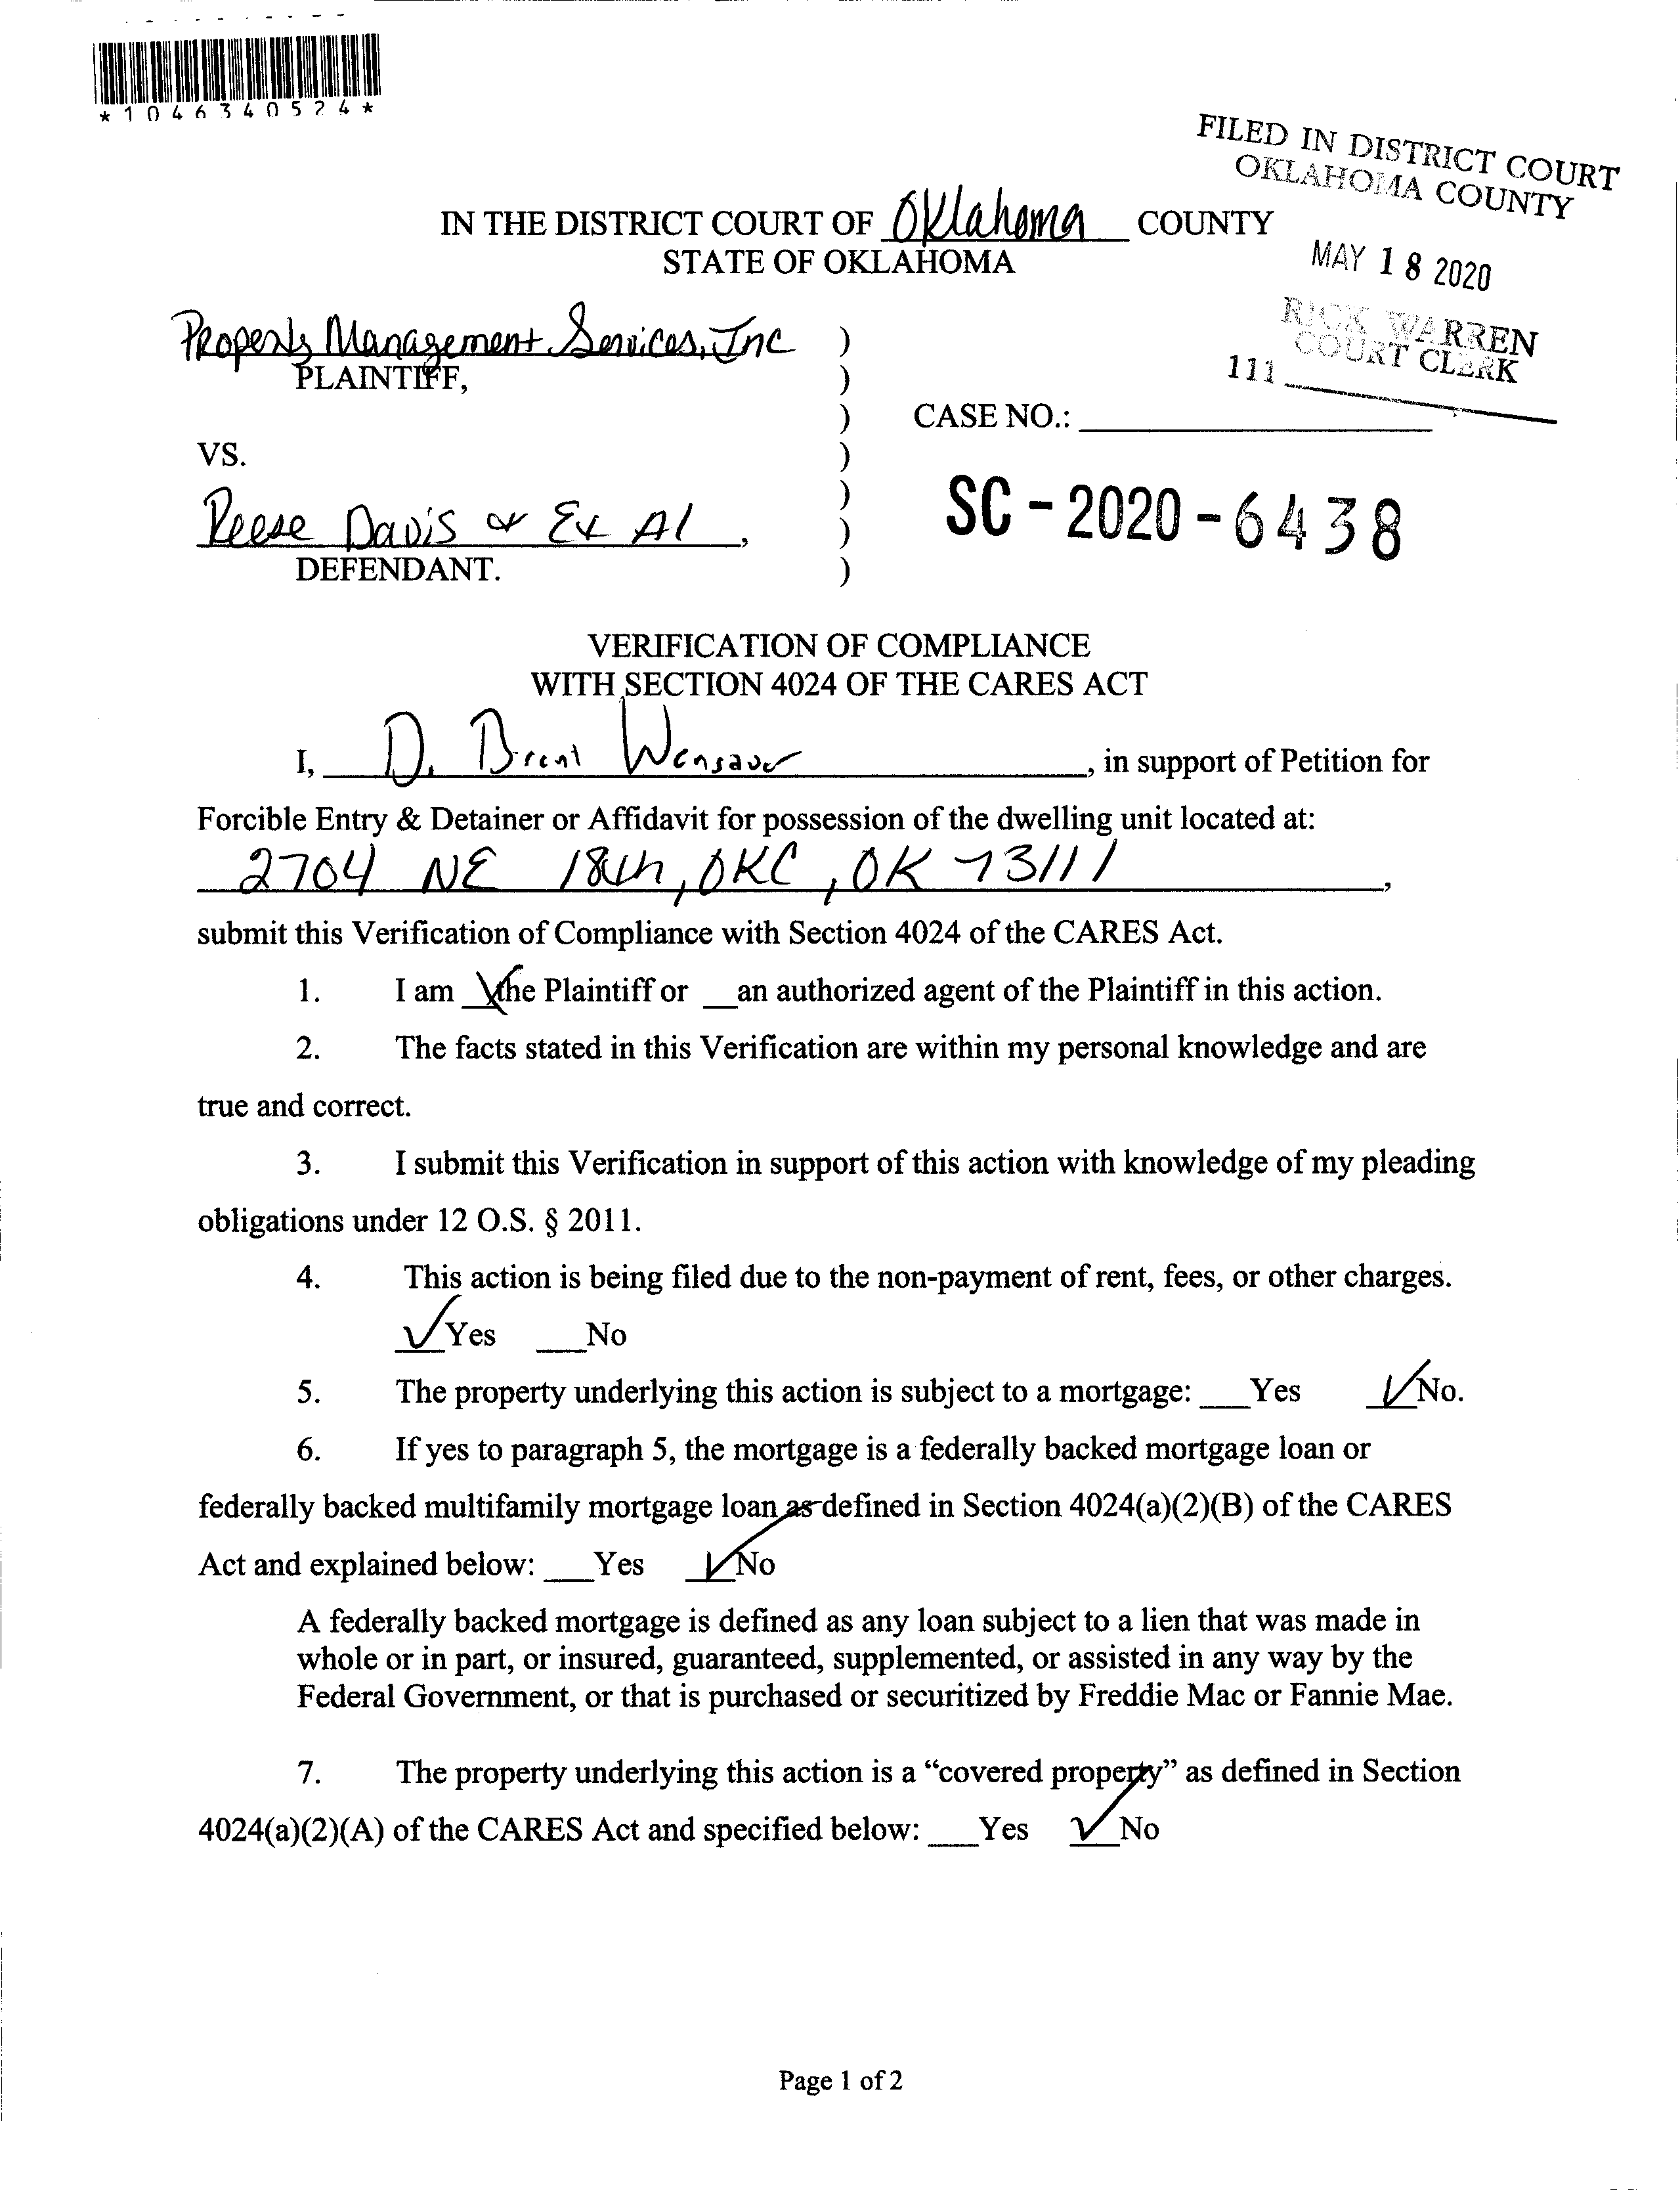 *1046340524*
FILED IN DISTRICT COURT
OKLAHOMA COUNTY
MAY 18 2020
RICK WARREN
COURT CLERK
111
IN THE DISTRICT COURT OF Oklahoma COUNTY
STATE OF OKLAHOMA
Property Management Services, Inc )
PLAINTIFF, )
) CASE NO.:
VS. )
) SC-2020-6438
Reese Davis & Et Al , )
DEFENDANT. )
VERIFICATION OF COMPLIANCE
WITH SECTION 4024 OF THE CARES ACT
I, D. Brent Wensauer, in support of Petition for
Forcible Entry & Detainer or Affidavit for possession of the dwelling unit located at:
2704 NE 18th, OKC, OK 73111,
submit this Verification of Compliance with Section 4024 of the CARES Act.
1. I am the Plaintiff or __an authorized agent of the Plaintiff in this action.
2. The facts stated in this Verification are within my personal knowledge and are
true and correct.
3. I submit this Verification in support of this action with knowledge of my pleading
obligations under 12 O.S. § 2011.
4. This action is being filed due to the non-payment of rent, fees, or other charges.
✓Yes ___No
5. The property underlying this action is subject to a mortgage: ___Yes ✓No.
6. If yes to paragraph 5, the mortgage is a federally backed mortgage loan or
federally backed multifamily mortgage loan as defined in Section 4024(a)(2)(B) of the CARES
Act and explained below: ___Yes ✓No
A federally backed mortgage is defined as any loan subject to a lien that was made in
whole or in part, or insured, guaranteed, supplemented, or assisted in any way by the
Federal Government, or that is purchased or securitized by Freddie Mac or Fannie Mae.
7. The property underlying this action is a “covered property” as defined in Section
4024(a)(2)(A) of the CARES Act and specified below: ___Yes ✓No
Page 1 of 2